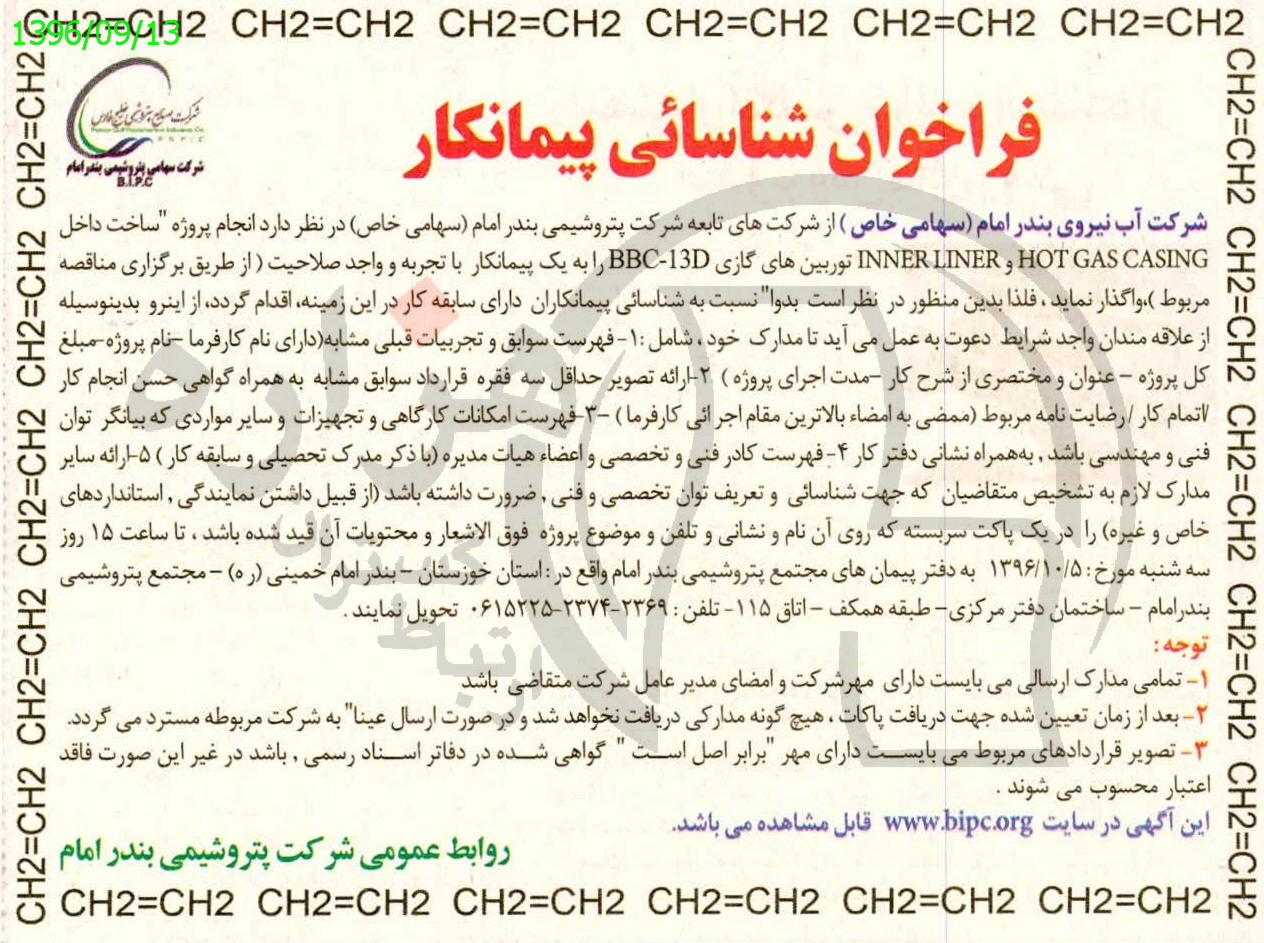 CH2=CH2 CH2=CH2 CH2=CH2 CH2=CH2 CH2=CH2 CH2=CH2
1396/09/13
شرکت صنایع پتروشیمی خلیج فارس
Persian Gulf Petrochemical Industries Co.
P G P I C
شرکت سهامی پتروشیمی بندرامام
B.I.P.C
فراخوان شناسائی پیمانکار
شرکت آب نیروی بندر امام (سهامی خاص ) از شرکت های تابعه شرکت پتروشیمی بندر امام (سهامی خاص) در نظر دارد انجام پروژه "ساخت داخل
HOT GAS CASING و INNER LINER توربین های گازی BBC-13D را به یک پیمانکار با تجربه و واجد صلاحیت ( از طریق برگزاری مناقصه
مربوط )،واگذار نماید ، فلذا بدین منظور در نظر است بدوا" نسبت به شناسائی پیمانکاران دارای سابقه کار در این زمینه، اقدام گردد، از اینرو بدینوسیله
از علاقه مندان واجد شرایط دعوت به عمل می آید تا مدارک خود ، شامل :۱- فهرست سوابق و تجربیات قبلی مشابه(دارای نام کارفرما –نام پروژه–مبلغ
کل پروژه – عنوان و مختصری از شرح کار –مدت اجرای پروژه ) ۲-ارائه تصویر حداقل سه فقره قرارداد سوابق مشابه به همراه گواهی حسن انجام کار
/اتمام کار /رضایت نامه مربوط (ممضی به امضاء بالاترین مقام اجرائی کارفرما ) –۳-فهرست امکانات کارگاهی و تجهیزات و سایر مواردی که بیانگر توان
فنی و مهندسی باشد , بههمراه نشانی دفتر کار ۴- فهرست کادر فنی و تخصصی و اعضاء هیات مدیره (با ذکر مدرک تحصیلی و سابقه کار ) ۵-ارائه سایر
مدارک لازم به تشخیص متقاضیان که جهت شناسائی و تعریف توان تخصصی و فنی , ضرورت داشته باشد (از قبیل داشتن نمایندگی , استانداردهای
خاص و غیره) را در یک پاکت سربسته که روی آن نام و نشانی و تلفن و موضوع پروژه فوق الاشعار و محتویات آن قید شده باشد ، تا ساعت ۱۵ روز
سه شنبه مورخ : ۱۳۹۶/۱۰/۵ به دفتر پیمان های مجتمع پتروشیمی بندر امام واقع در : استان خوزستان – بندر امام خمینی (ر ه) – مجتمع پتروشیمی
بندرامام – ساختمان دفتر مرکزی– طبقه همکف – اتاق ۱۱۵ - تلفن : ۲۳۶۹-۲۳۷۴-۰۶۱۵۲۲۵ تحویل نمایند .
توجه :
۱- تمامی مدارک ارسالی می بایست دارای مهرشرکت و امضای مدیر عامل شرکت متقاضی باشد
۲- بعد از زمان تعیین شده جهت دریافت پاکات ، هیچ گونه مدارکی دریافت نخواهد شد و در صورت ارسال عینا" به شرکت مربوطه مسترد می گردد.
۳- تصویر قراردادهای مربوط می بایست دارای مهر "برابر اصل است " گواهی شده در دفاتر اسناد رسمی , باشد در غیر این صورت فاقد
اعتبار محسوب می شوند .
این آگهی در سایت www.bipc.org قابل مشاهده می باشد.
روابط عمومی شرکت پتروشیمی بندر امام
هزاره
گستران
ارتباط
CH2=CH2 CH2=CH2 CH2=CH2 CH2=CH2 CH2=CH2
CH2=CH2 CH2=CH2 CH2=CH2 CH2=CH2 CH2=CH2
CH2=CH2 CH2=CH2 CH2=CH2 CH2=CH2 CH2=CH2 CH2=CH2